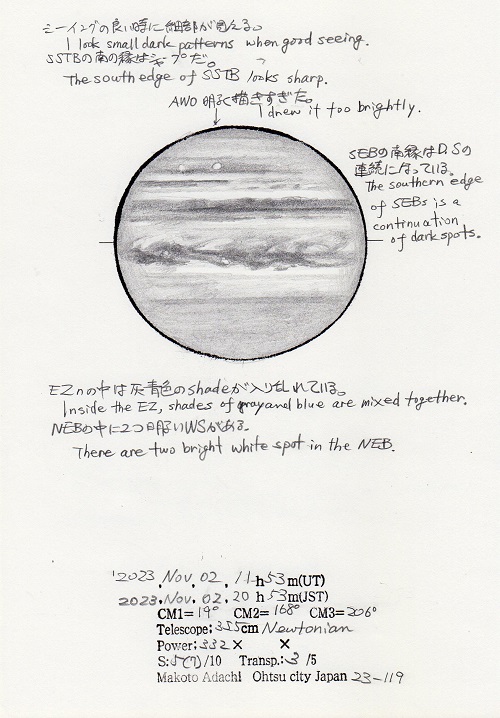 シーイングの良い時に細部が見える。
I look small dark patterns when good seeing.
SSTBの南の縁はシャープだ。
The south edge of SSTB looks sharp.
AWO 明るく描きすぎた。
I drew it too brightly.
SEBの南縁はD.Sの
連続になっている。
The southern edge
of SEBs is a
continuation
of dark spots.
EZnの中は灰青色のshadeが入り乱れている。
Inside the EZ, shades of gray and blue are mixed together.
NEBの中に2つ明るいWSがある。
There are two bright white spot in the NEB.
'2023. Nov. 02. 11h53m(UT)
2023. Nov. 02. 20h53m(JST)
CM1=19° CM2=168° CM3=206°
Telescope: 355cm Newtonian
Power: 332× ×
S: 5(7)/10 Transp.: 3/5
Makoto Adachi Ohtsu city Japan 23-119